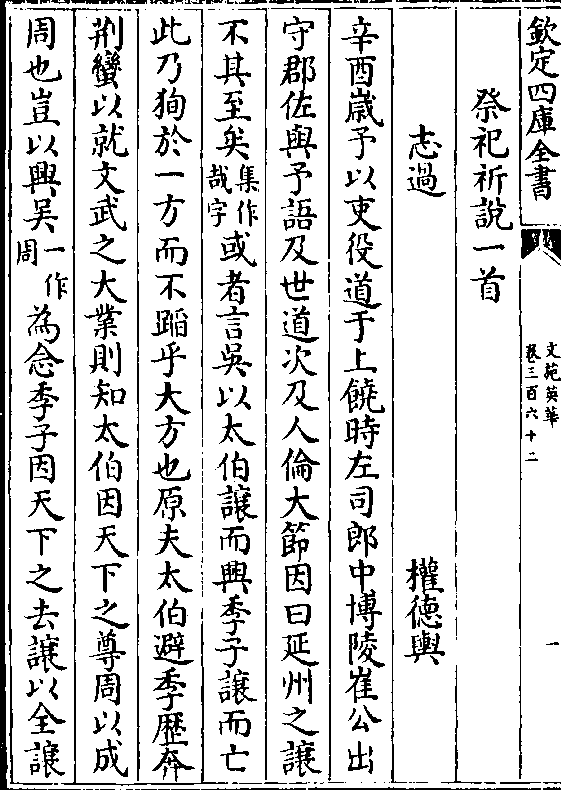 欽定四庫全書
文苑英華
卷三百六十二
一
祭祀祈說一首
志過　權德輿
辛酉嵗予以吏役道于上饒時左司郎中博陵崔公出
守郡佐與予語及世道次及人倫大節因曰延州之讓
不其至矣集作哉字或者言吳以太伯讓而興季子讓而亡
此乃狥於一方而不蹈乎大方也原夫太伯避季歷奔
荆蠻以就文武之大業則知太伯因天下之尊周以成
周也豈以興吳一作周為念季子因天下之去讓以全讓